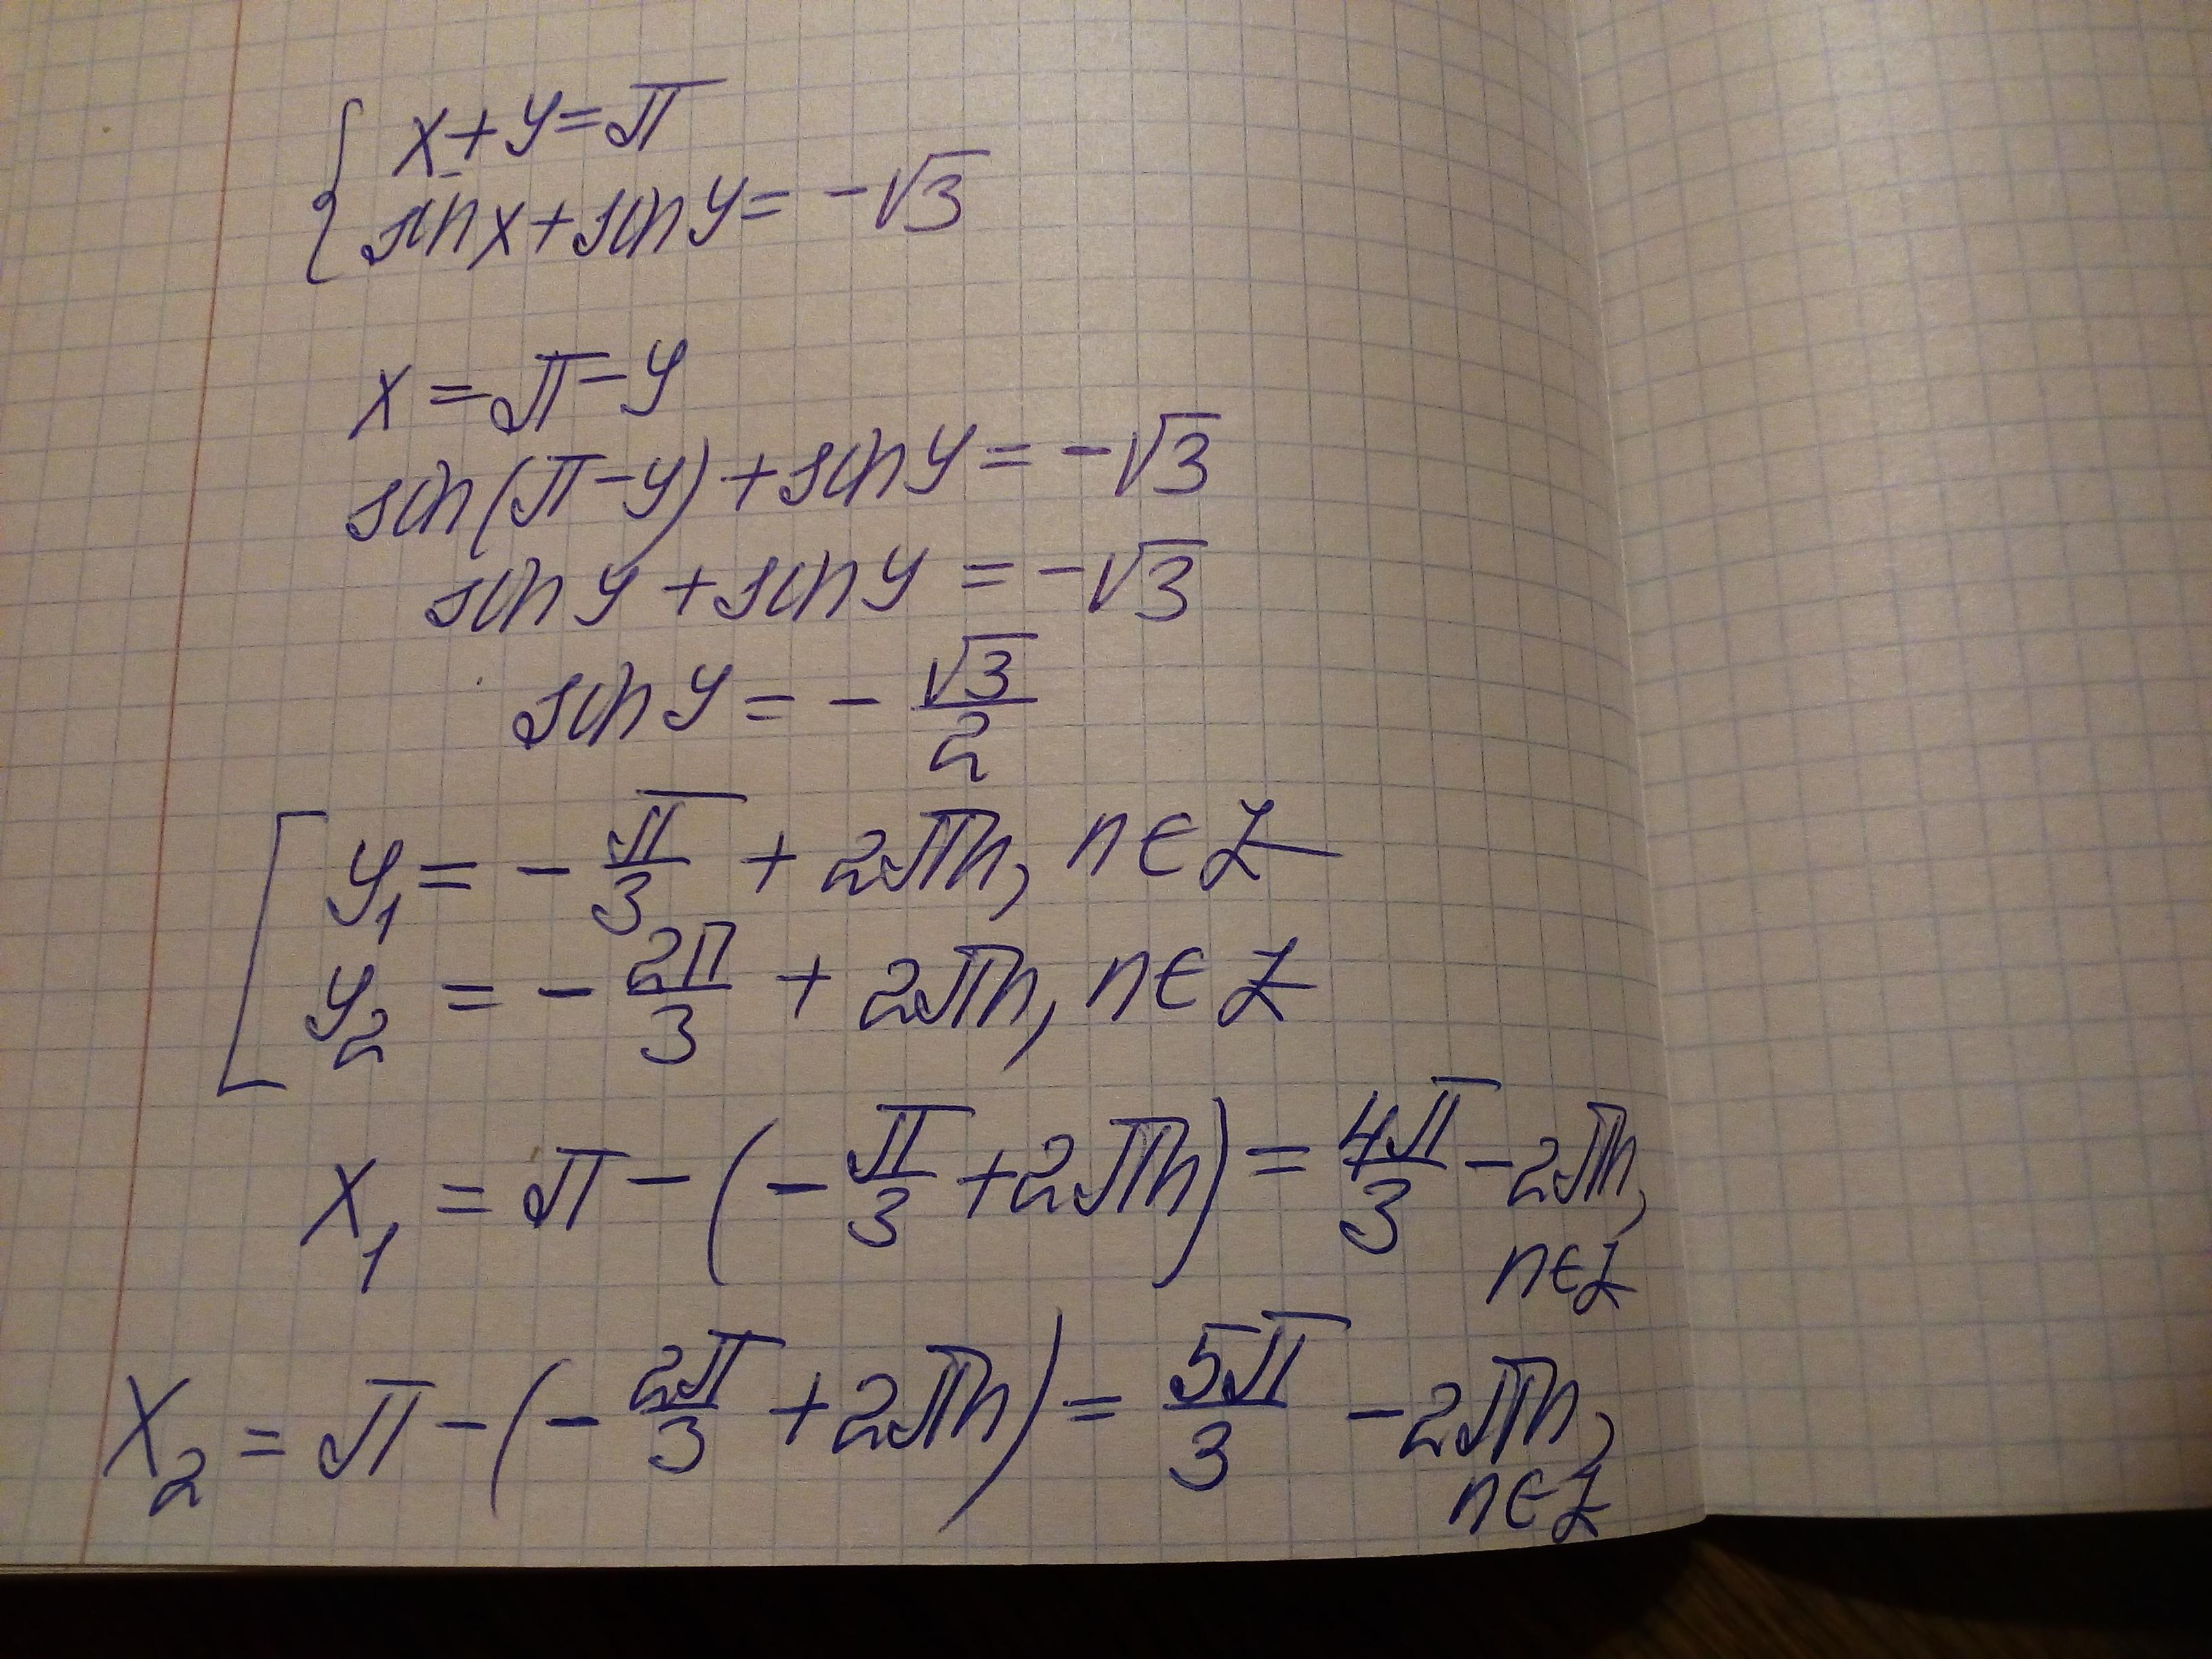 { x+y=π
sin x+sin y= -√3
x=π-y
sin(π-y)+sin y= -√3
sin y+sin y = -√3
sin y= - √3/2
[ y₁= - π/3 + 2πn, n∈Z
y₂ = - 2π/3 + 2πn, n∈Z
x₁ = π-(-π/3+2πn)= 4π/3 -2πn, n∈Z
x₂ = π-(-2π/3+2πn)= 5π/3 -2πn, n∈Z